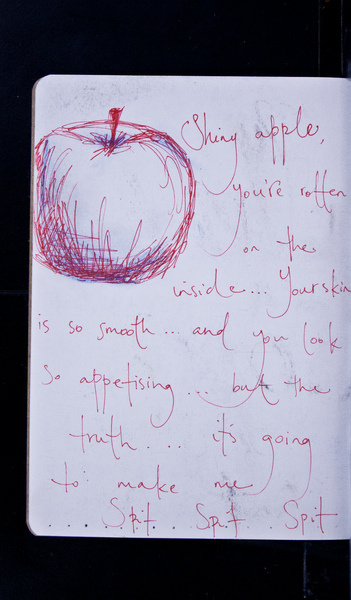 Shiny apple,
you're rotten
on the
inside... Your skin
is so smooth... and you look
so appetising... but the
truth.... it's going
to make me
..... Spit . Spit . Spit